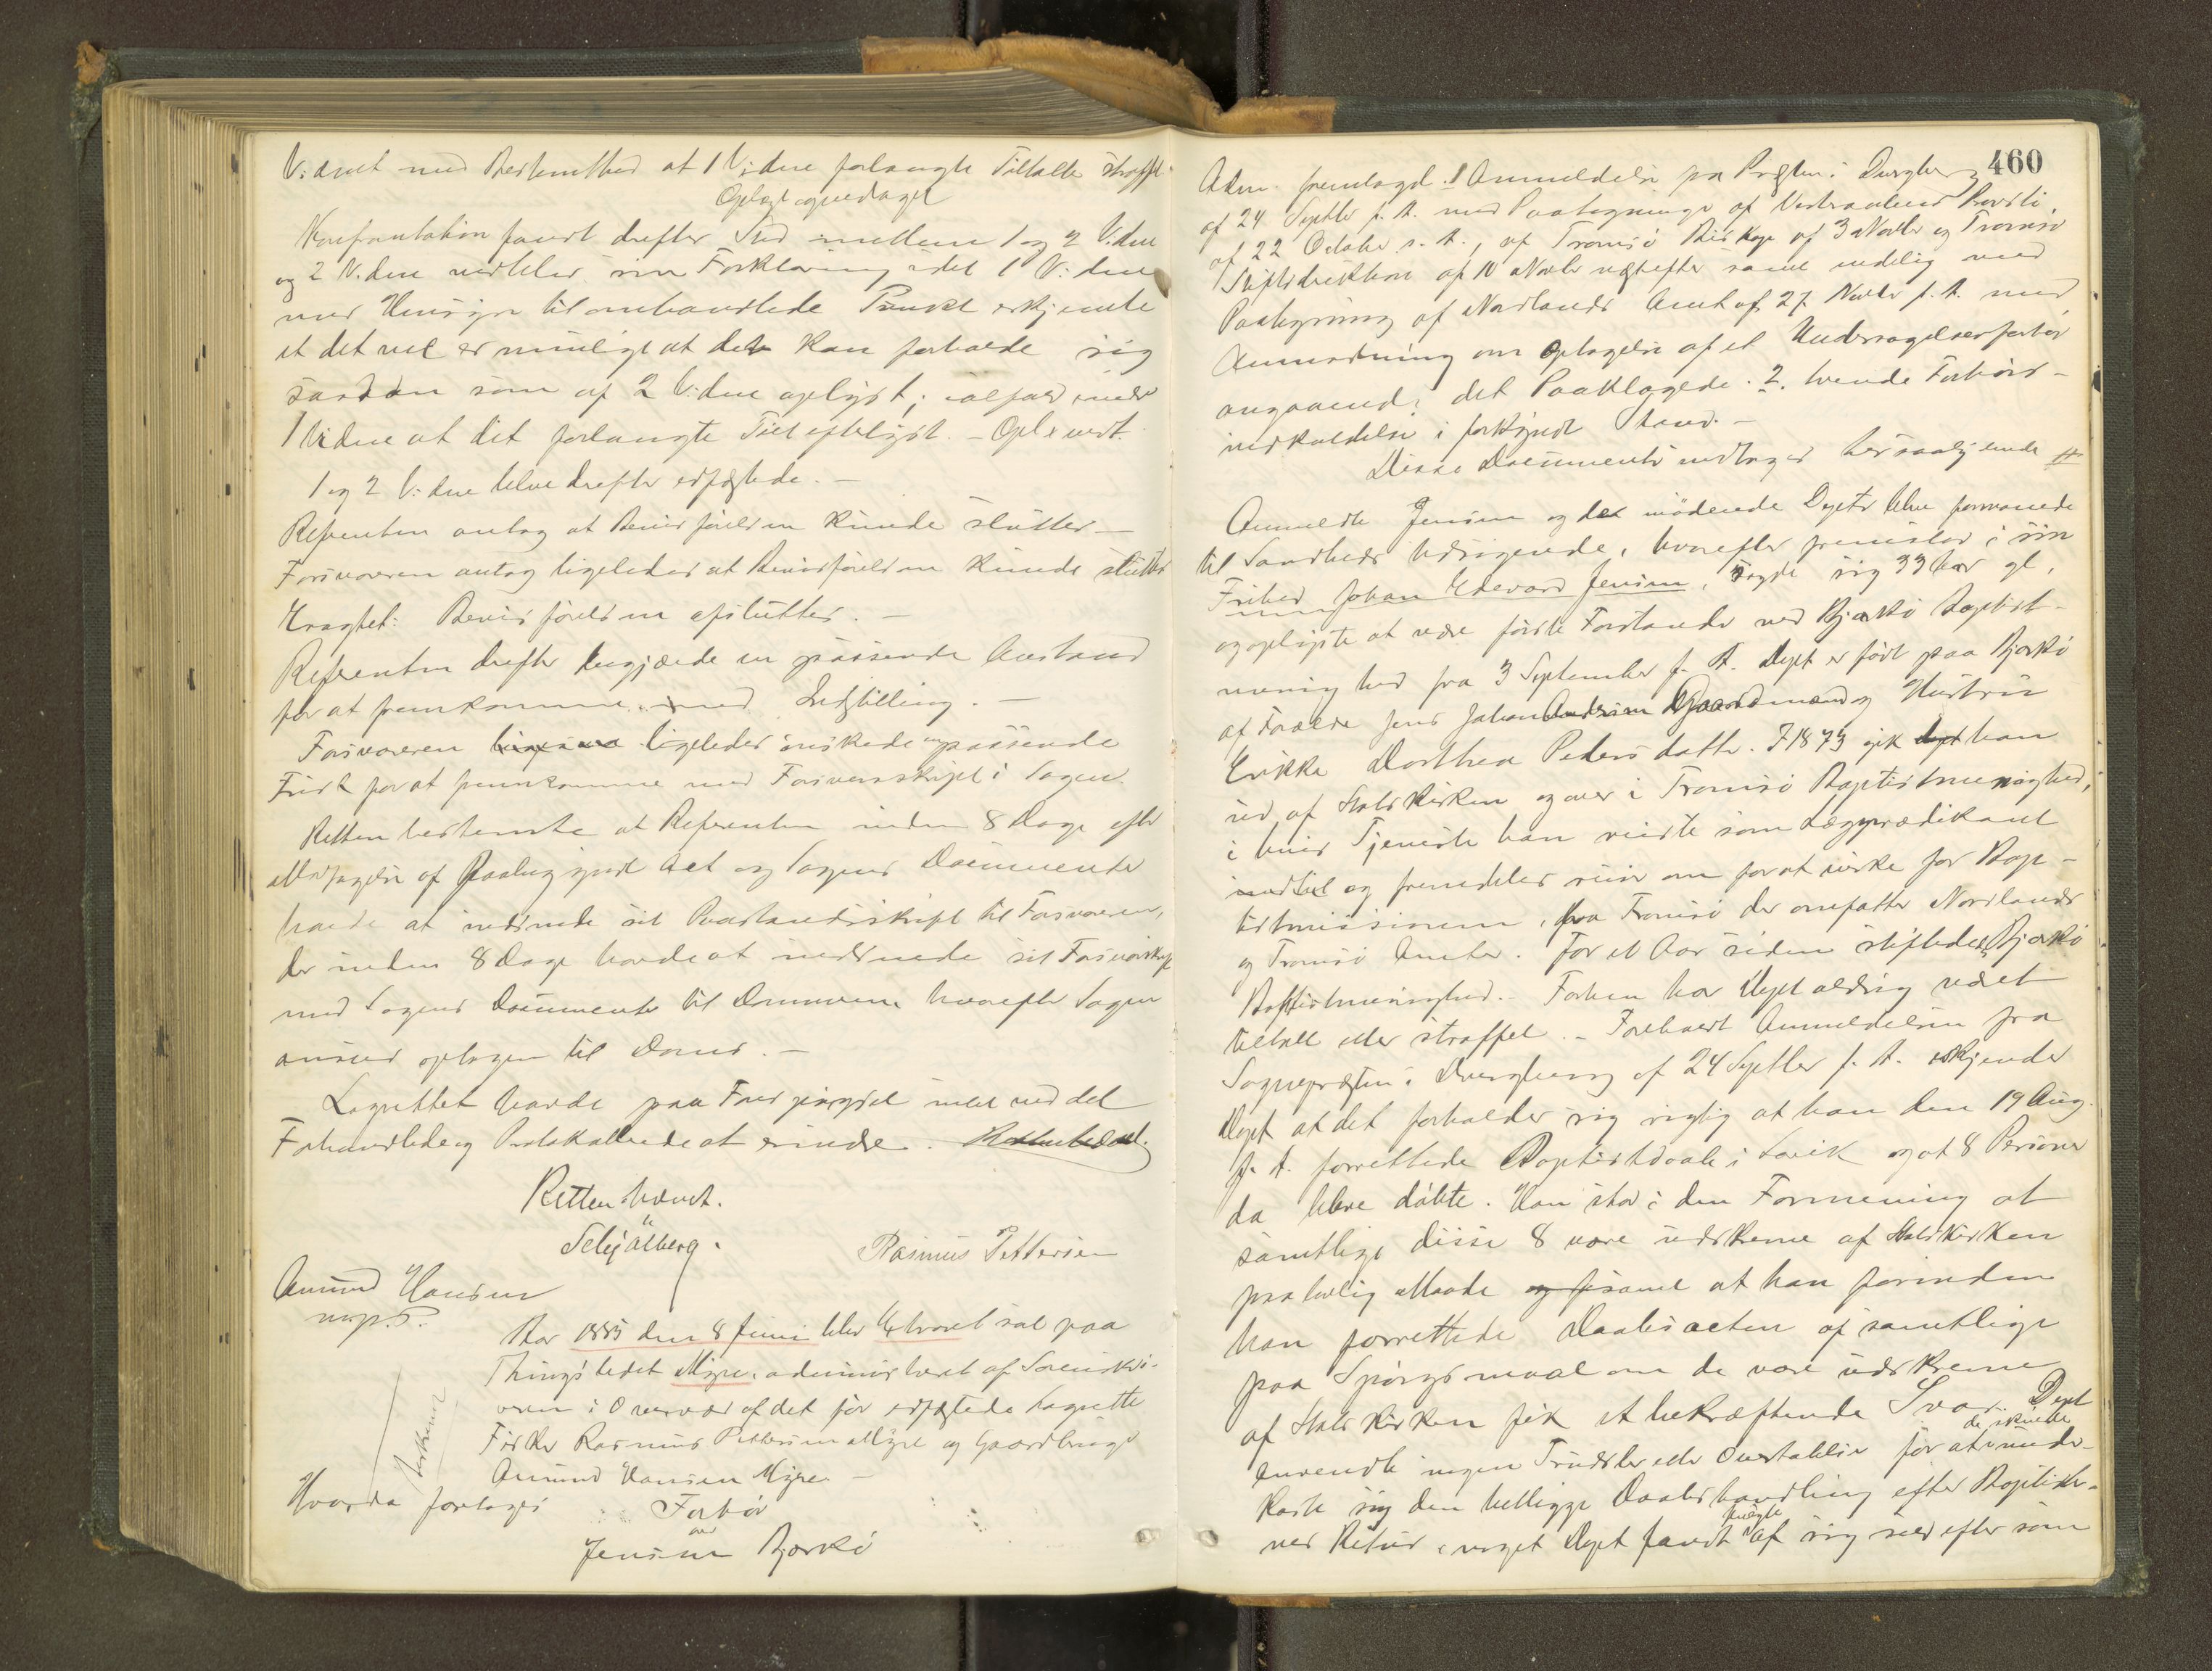 Vidnet med Bestemthed at 1 Vidne forlangte Tiltalte straffet.
Oplæst og vedtaget
Konfrontation fandt derefter Sted mellem 1 og 2 Vidne
og 2 Vidne vedblev sin Forklaring idet 1 Vidne
med Hensyn til omhandlede Punkt erkjendte
at det vel er muligt at det kan forholde sig
saadan som af 2 Vidne oplyst; ialfald
1 Vidne at det forlangte Opl. & vedt.
1 og 2 Vidne bleve derefter edfæstede. -
Referenten antog at Bevisførelsen kunde sluttes -
Forsvareren antog ligeledes at Bevisførelsen kunde sluttes
Eragtet: Bevisførelsen afsluttes. -
Referenten derefter begjærede en passende Anstand
for at fremkomme med Indstilling. -
Forsvareren ligeledes ønskede en passende
Frist for at fremkomme med Forsvarsskrift i Sagen.
Retten bestemte at Referenten inden 8 Dage efter
Modtagelse af Act og Sagens Documenter
havde at indsende sit Paastandsskrift til Forsvareren,
der inden 8 Dage havde at indsende sit Forsvarsskrift
med Sagens Documenter til Dommeren hvorefter Sagen
ansees optagen til Doms. -
Lagrettet havde paa Forespørgsel intet ved det
Forhandlede og Protokollerede at erindre.
Retten hævet.
Selejålberg.
Rasmus Pettersen
Amund Hansen
m. p. P.
Aar 1885 den 8 Juni blev Extraret sat paa
Thingstedet Myre, administreret af Sorenskri-
veren i Overvær af det før edfæstede Lagrette
Fisker Rasmus Pettersen Myre og Gaardbruger
Amund Hansen Myre -
Hvorda foretoges
Forhør
over
Jensen Bjørkø
460
Adm. fremlagde 1 Anmeldelse fra Præsten i Dverberg
af 24 Septbr f. A. med Paategninger af Vesteraalens Provsti
af 22 October s. A., af Tromsø Biskop af 3 Novbr og Tromsø
Stiftsdirektion af 10 Novbr næstefter samt endelig med
Paategning af Nordlands Amt af 27 Novbr f. A. med
Anmodning om Optagelse af et Undersøgelsesforhør
angaaende det Paaklagede. 2. tvende Forhørs-
indkaldelse i forkyndt Stand. -
Disse Documenter indtages her saalydende #
Anmeldte Jensen og det mødende Deptr bleve formanede
til Sandheds Udsigende, hvorefter fremstod i sin
Frihed Johan Edevard Jensen, sagde sig 33 Aar gl,
og oplyste at være første Forstander ved Bjørkø Baptist-
menighed fra 3 September f. A. Dept er født paa Bjørkø
af Forældre Jens Johan Andersen Gaardmand og Hustru
Erikke Dorthea Pedersdatter. I 1873 gik han
ud af Statskirken og over i Tromsø Baptistmenighed,
i hvis Tjeneste han reiste som Lægprædikant
indtil og fremdeles reiser om for at virke for Bap-
tistmissionen, fra Tromsø der omfatter Nordlands
og Tromsø Amter. For et Aar siden stiftedes Bjørkø
Baptistmenighed. Forhen har Dept aldrig været
tiltalt eller straffet. - Foreholdt Anmeldelsen fra
Sognepræsten i Dverberg af 24 Septbr f. A. erkjender
Dept at det forholder sig rigtig at han den 19 Aug.
f. A. forrettede Baptistdaab i Lovik og at 8 Personer
da bleve døbte. Han stod i den Formening at
samtlige disse 8 vare udskrevne af Statskirken
paa lovlig Maade samt at han forinden
han forrettede Daabsacten af samtlige
paa Spørgsmaal om de vare udskrevne
af Statskirken fik et bekræftende Svar. Dept
anvendte ingen Trudsler eller Overtalelser for at de skulde under-
kaste sig den hellige Daabshandling efter Baptister-
nes Ritus, noget Dept fandt af sig selv efter som